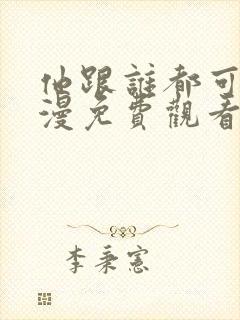 他跟誰都可
漫免費觀看
李秉憲